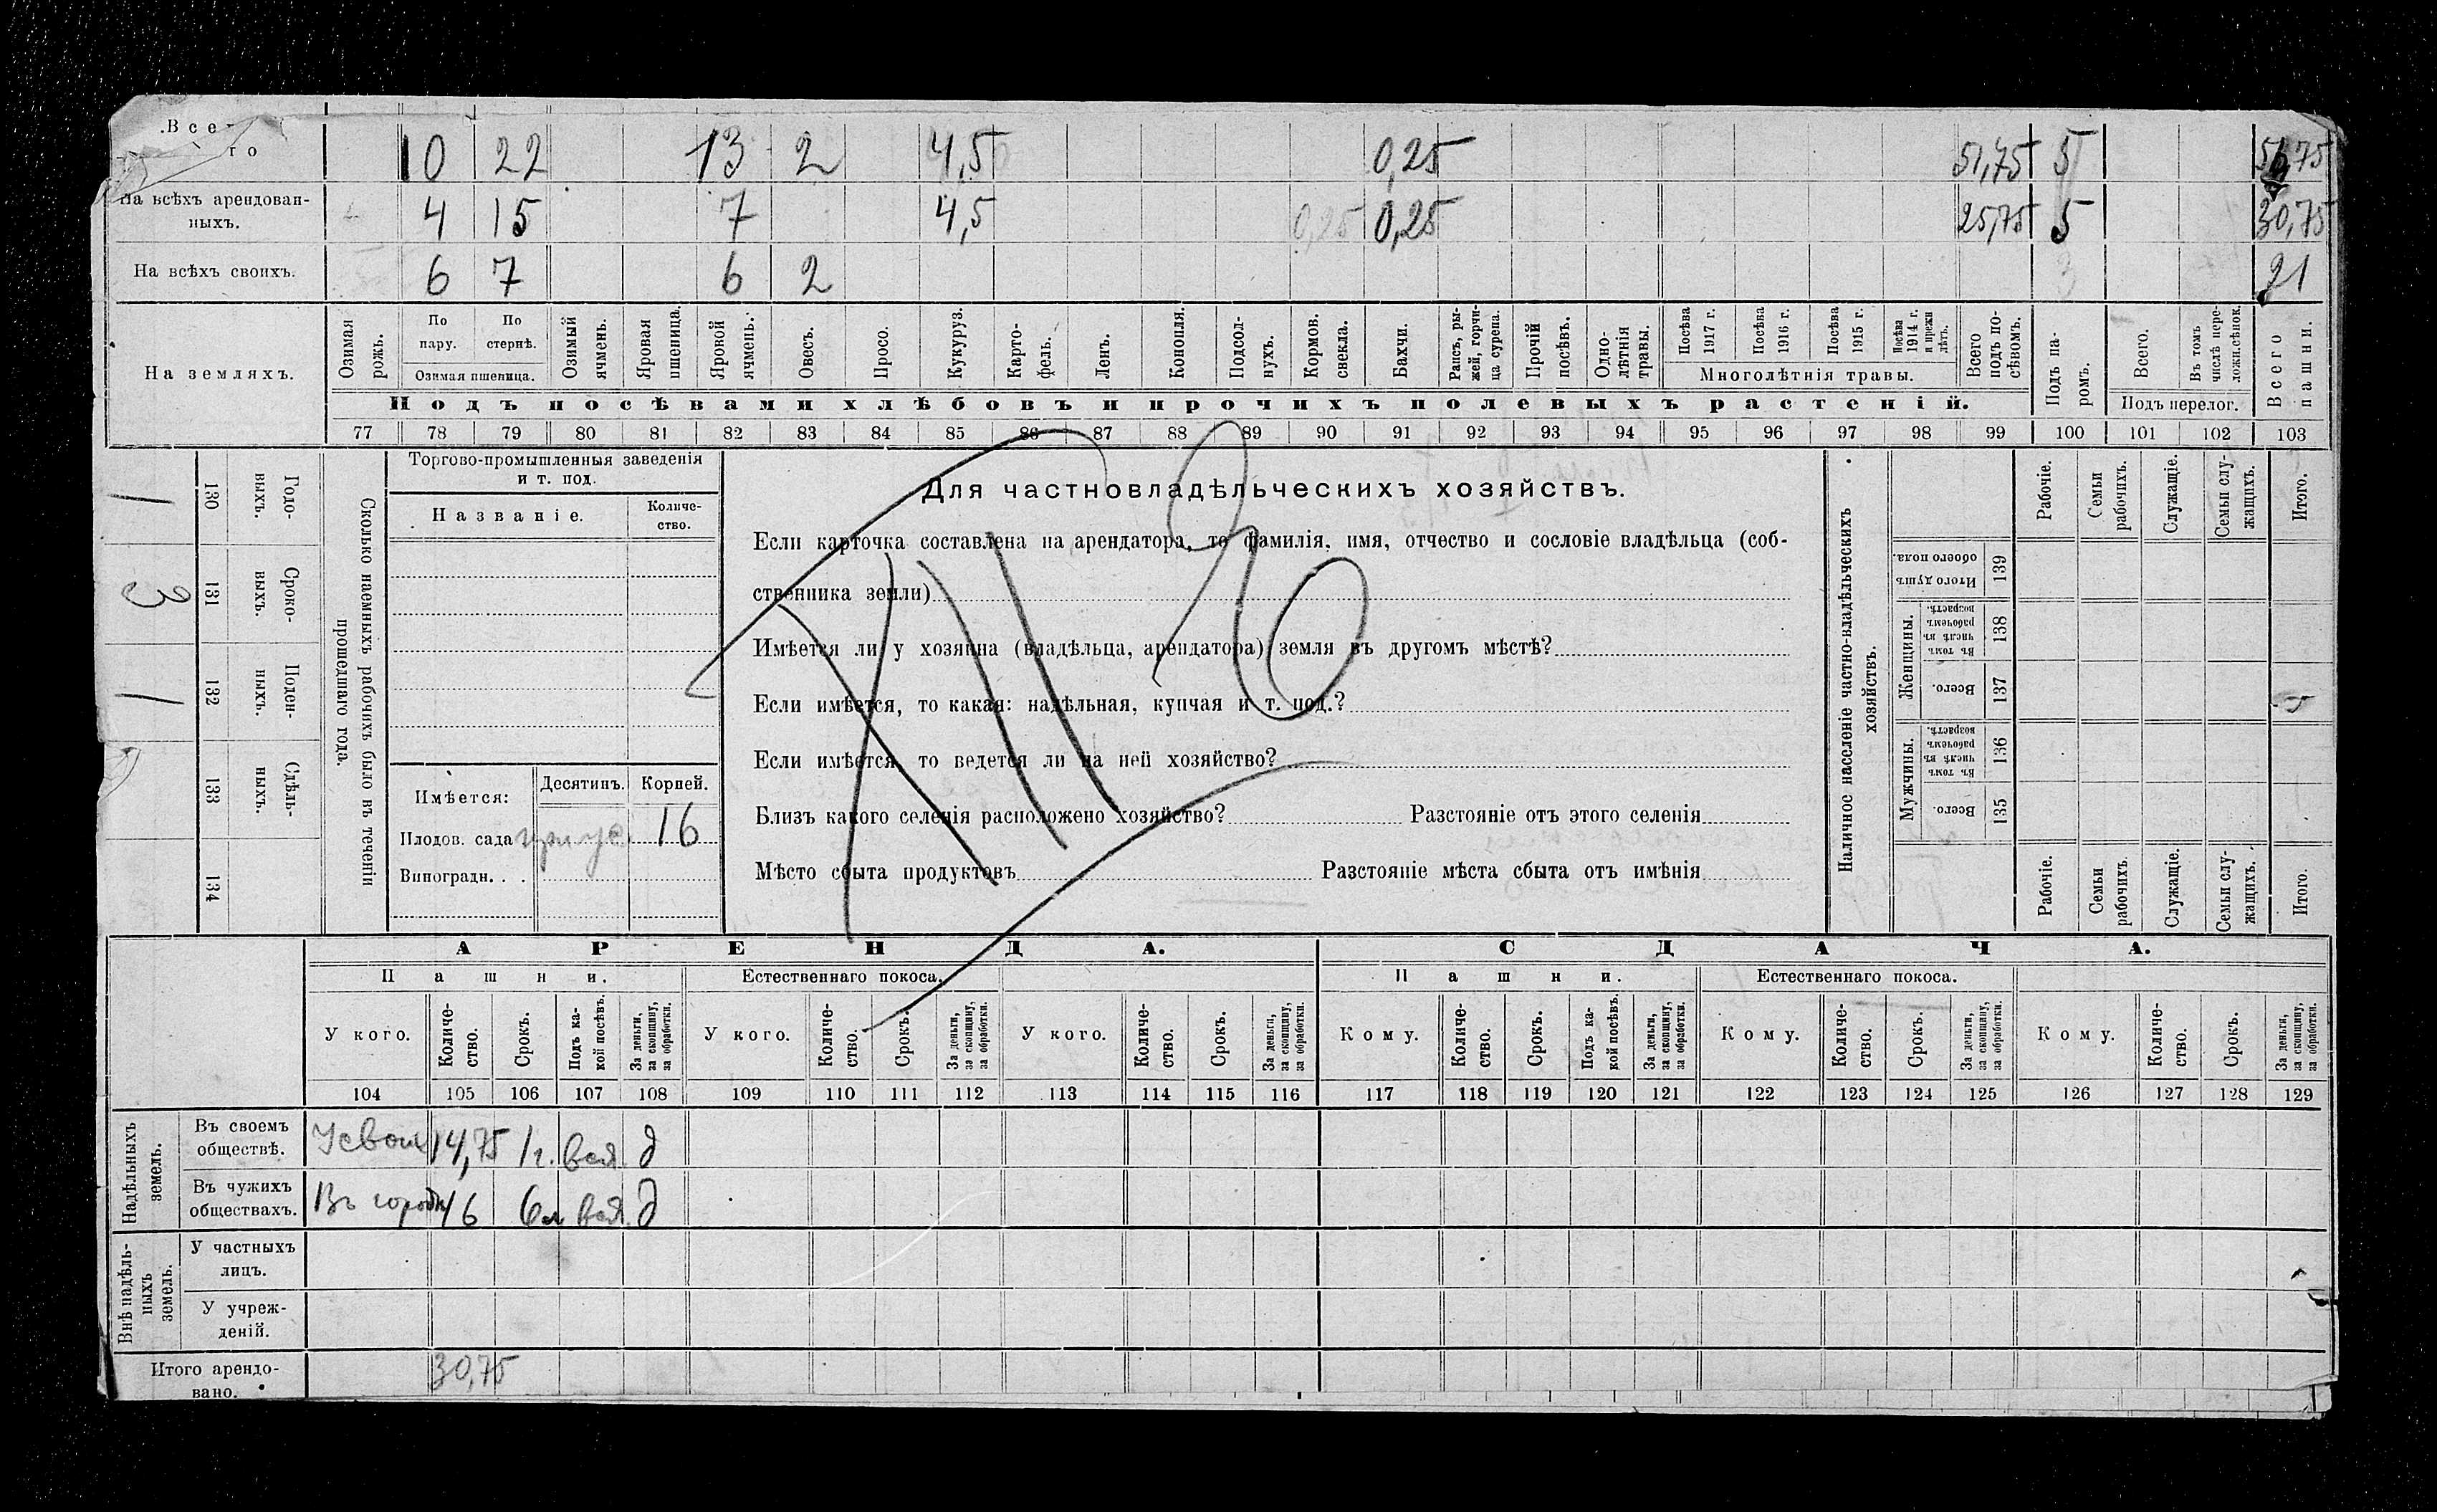 Всего 10 22 13 2 4,5 0,25 51,75 5 75
На всѣхъ арендованныхъ. 4 15 7 4,5 0,25 0,25 25,75 5 30,75
На всѣхъ своихъ. 6 7 6 2 21
На земляхъ.
Озимая рожь.
По пару.
По стернѣ.
Озимая пшеница.
Озимый ячмень.
Яровая пшеница.
Яровой ячмень.
Овесъ.
Просо.
Кукуруз.
Картофель.
Ленъ.
Конопля.
Подсолнухъ.
Кормов. свекла.
Бахчи.
Рапсъ, рыжей, горчица сурепа.
Прочій посѣвъ.
Однолѣтнія травы.
Посѣва 1917 г.
Посѣва 1916 г.
Посѣва 1915 г.
Посѣва 1914 г. и прежн лѣтъ.
Многолѣтнія травы.
Всего подъ посѣвомъ.
Подъ паромъ.
Всего.
Въ томъ числѣ перелож. сѣнок.
Подъ перелог.
Всего пашни.
Подъ посѣвами хлѣбовъ и прочихъ полевыхъ растеній.
77 78 79 80 81 82 83 84 85 86 87 88 89 90 91 92 93 94 95 96 97 98 99 100 101 102 103
Сколько наемныхъ рабочихъ было въ теченіи прошедшаго года.
Годовыхъ. 130 1
Сроковыхъ. 131 3
Поденныхъ. 132 1
Сдѣльныхъ. 133
134
Торгово-промышленныя заведенія и т. под.
Названіе.
Количество.
Имѣется: Десятинъ. Корней.
Плодов. сада 16
Виноградн. . .
Для частновладѣльческихъ хозяйствъ.
Если карточка составлена на арендатора, то фамилія, имя, отчество и сословіе владѣльца (соб-
ственника земли)
Имѣется ли у хозяина (владѣльца, арендатора) земля въ другомъ мѣстѣ?
Если имѣется, то какая: надѣльная, купчая и т. под.?
Если имѣется, то ведется ли на ней хозяйство?
Близъ какого селенія расположено хозяйство? Разстояніе отъ этого селенія
Мѣсто сбыта продуктовъ Разстояніе мѣста сбыта отъ имѣнія
Наличное населеніе частно-владѣльческихъ хозяйствъ.
Рабочіе.
Семьи рабочихъ.
Служащіе.
Семьи служащихъ.
Итого.
Итого душъ обоего пола. 139
Женщины.
Въ томъ числѣ въ рабочемъ возрастѣ. 138
Всего. 137
Мужчины.
Въ томъ числѣ въ рабочемъ возрастѣ. 136
Всего. 135
Рабочіе.
Семьи рабочихъ.
Служащіе.
Семьи служащихъ.
Итого.
АРЕНДА. СДАЧА.
Пашни. Естественнаго покоса. Пашни. Естественнаго покоса.
У кого.
Количество.
Срокъ.
Подъ какой посѣвъ.
За деньги, за скопщину, за обработки.
У кого.
Количество.
Срокъ.
За деньги, за скопщину, за обработки.
У кого.
Количество.
Срокъ.
За деньги, за скопщину, за обработки.
Кому.
Количество.
Срокъ.
Подъ какой посѣвъ.
За деньги, за скопщину, за обработки.
Кому.
Количество.
Срокъ.
За деньги, за скопщину, за обработки.
Кому.
Количество.
Срокъ.
За деньги, за скопщину, за обработки.
104 105 106 107 108 109 110 111 112 113 114 115 116 117 118 119 120 121 122 123 124 125 126 127 128 129
Надѣльныхъ земель.
Въ своемъ обществѣ. 14,75 1 г. д
Въ чужихъ обществахъ. Въ 16 6 д
Внѣ надѣльныхъ земель.
У частныхъ лицъ.
У учрежденій.
Итого арендовано. 30,75